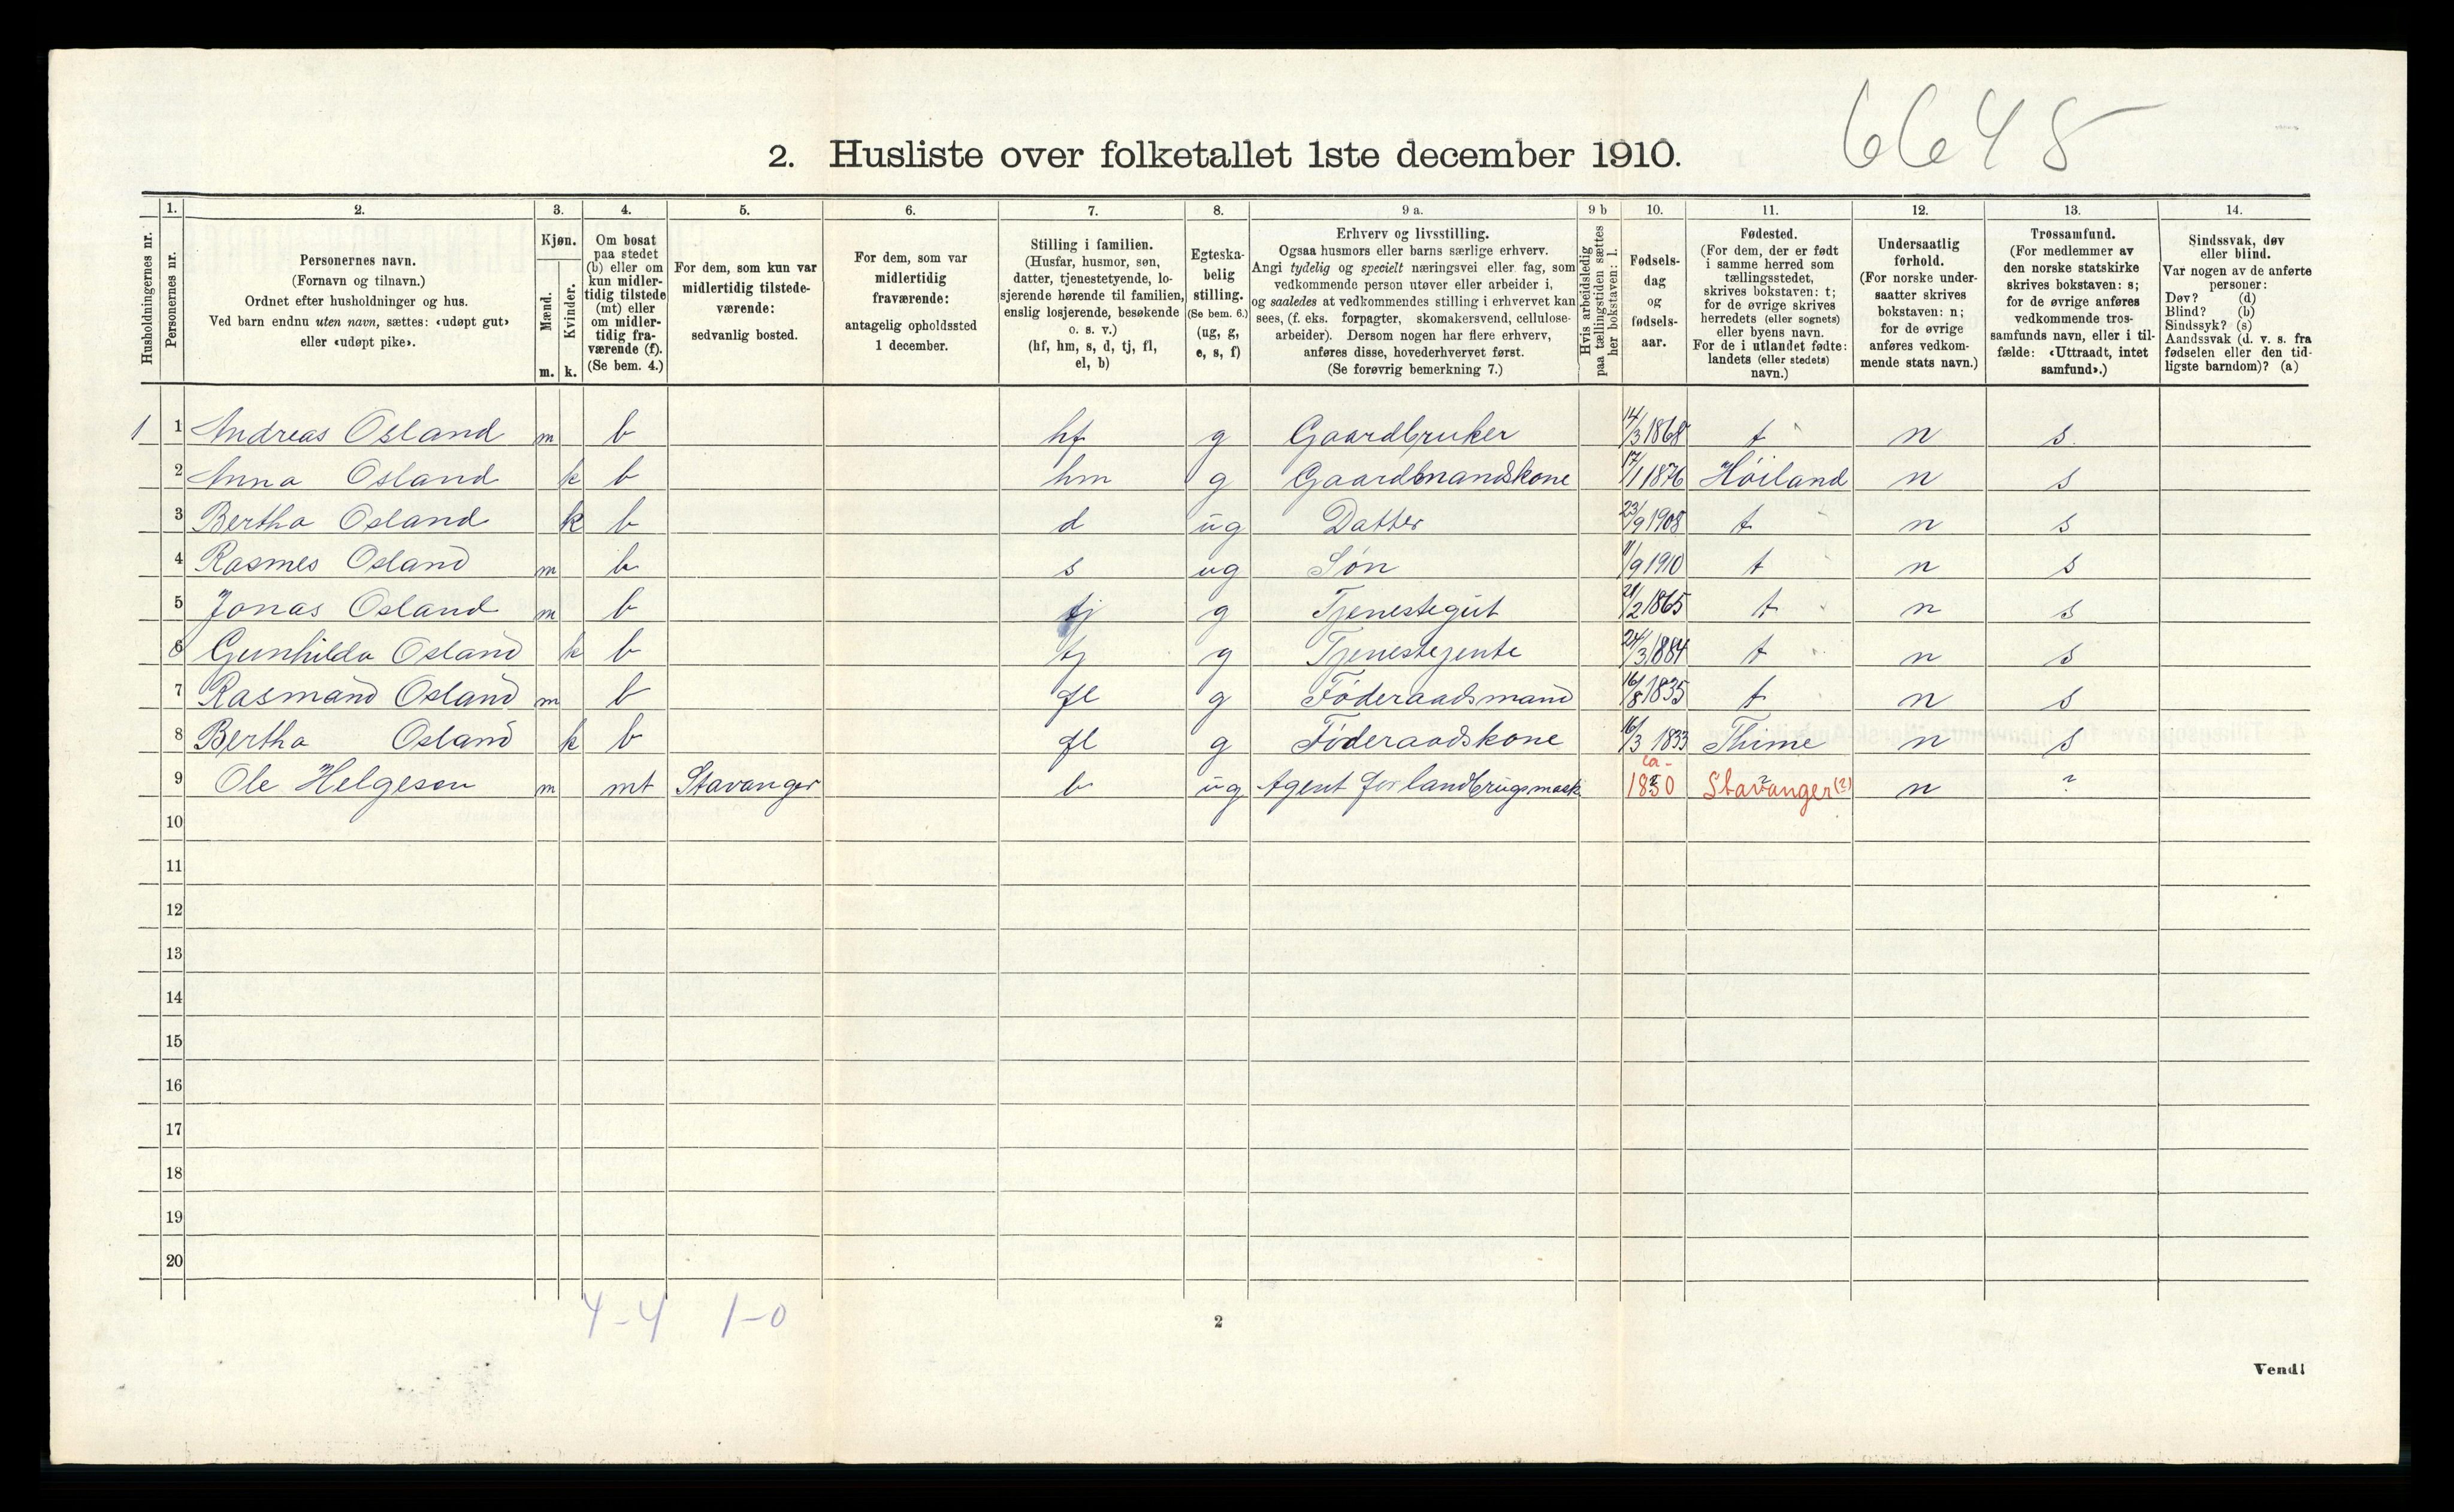 6648
2. Husliste over folketallet 1ste december 1910.
Husholdningernes nr.
1.
Personernes nr.
2.
Personernes navn.
(Fornavn og tilnavn.)
Ordnet efter husholdninger og hus.
Ved barn endnu uten navn, sættes: «udøpt gut»
eller «udøpt pike».
3.
Kjøn.
Mænd.
Kvinder.
m. k.
4.
Om bosat
paa stedet
(b) eller om
kun midler-
tidig tilstede
(mt) eller
om midler-
tidig fra-
værende (f).
(Se bem. 4.)
5.
For dem, som kun var
midlertidig tilstede-
værende:
sedvanlig bosted.
6.
For dem, som var
midlertidig
fraværende:
antagelig opholdssted
1 december.
7.
Stilling i familien.
(Husfar, husmor, søn,
datter, tjenestetyende, lo-
sjerende hørende til familien,
enslig losjerende, besøkende
o. s. v.)
(hf, hm, s, d, tj, fl,
el, b)
8.
Egteska-
belig
stilling.
(Se bem. 6.)
(ug, g,
e, s, f)
9 a.
Erhverv og livsstilling.
Ogsaa husmors eller barns særlige erhverv.
Angi tydelig og specielt næringsvei eller fag, som
vedkommende person utøver eller arbeider i,
og saaledes at vedkommendes stilling i erhvervet kan
sees, (f. eks. forpagter, skomakersvend, cellulose-
arbeider). Dersom nogen har flere erhverv,
anføres disse, hovederhvervet først.
(Se forøvrig bemerkning 7.)
9 b
Hvis arbeidsledig
paa tællingstiden sættes
her bokstaven: l.
10.
Fødsels-
dag
og
fødsels-
aar.
11.
Fødested.
(For dem, der er født
i samme herred som
tællingsstedet,
skrives bokstaven: t;
for de øvrige skrives
herredets (eller sognets)
eller byens navn.
For de i utlandet fødte:
landets (eller stedets)
navn.)
12.
Undersaatlig
forhold.
(For norske under-
saatter skrives
bokstaven: n;
for de øvrige
anføres vedkom-
mende stats navn.)
13.
Trossamfund.
(For medlemmer av
den norske statskirke
skrives bokstaven: s;
for de øvrige anføres
vedkommende tros-
samfunds navn, eller i til-
fælde: «Uttraadt, intet
samfund».)
14.
Sindssvak, døv
eller blind.
Var nogen av de anførte
personer:
Døv? (d)
Blind? (b)
Sindssyk? (s)
Aandssvak (d. v. s. fra
fødselen eller den tid-
ligste barndom)? (a)
1 1 Andreas Osland m b hf g Gaardbruker 14/3 1868 t n s
2 Anna Osland k b hm g Gaardmandskone 17/1 1876 Høiland n s
3 Bertha Osland k b d ug Datter 23/9 1908 t n s
4 Rasmes Osland m b s ug Søn 11/9 1910 t n s
5 Jonas Osland m b tj g Tjenestegut 21/2 1865 t n s
6 Gunhilda Osland k b tj g Tjenestejente 24/3 1884 t n s
7 Rasmand Osland m b fl g Føderaadsmand 16/8 1835 t n s
8 Bertha Osland k b fl g Føderaadskone 16/3 1833 Thime n s
9 Ole Helgesen m mt Stavanger b ug Agent for landbrugsmask ca- 1850 ? Stavanger (?) n ?
10
11
12
13
14
15
16
17
18
19
20
4-4 1-0
2
Vend!